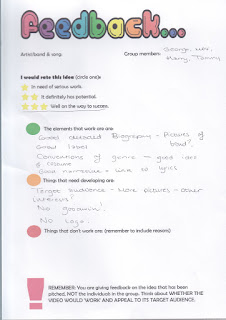 Feedback...
Artist/band & song:
Group member: George, Mel,
Harry, Tommy
I would rate this idea (circle one):
In need of serious work.
It definitely has potential.
Well on the way to success.
The elements that work are are:
Good detailed Biography - Pictures of
Good label band?
Conventions of genre - good idea
of costume
Good narrative - links to lyrics
Things that need developing are:
Target audience - More pictures - Other
interests?
No
No Logo.
Things that don't work are: (remember to include reasons)
REMEMBER: You are giving feedback on the idea that has been
pitched, NOT the individuals in the group. Think about WHETHER THE
VIDEO WOULD 'WORK' AND APPEAL TO ITS TARGET AUDIENCE.